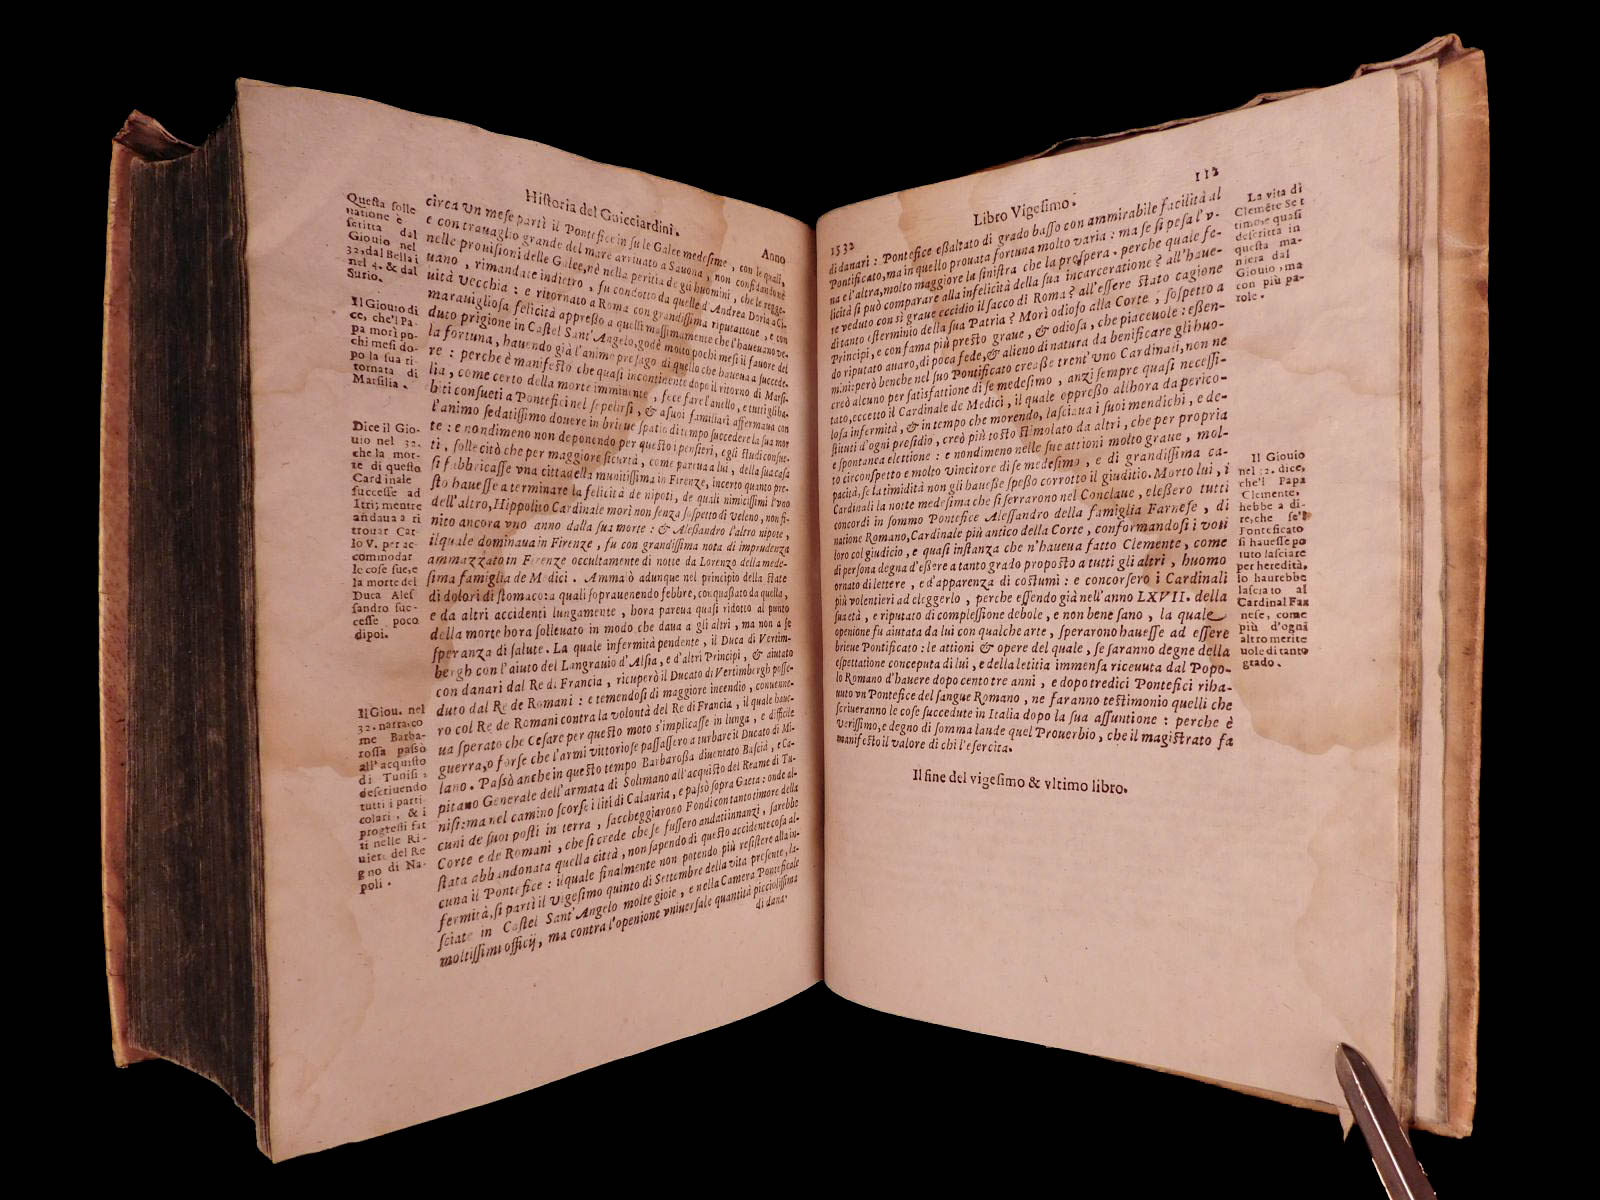 Historia del Guicciardini.
Anno
Questa solle
uatione è
scritta dal
Giouio nel
32, dal Bellai
nel 4. & dal
Surio.
Il Giouio di
ce, che'l Pa-
pa morì po-
chi mesi do-
po la sua ri-
tornata di
Marsilia.
Dice il Gio-
uio nel 32.
che la mor-
te di questo
Cardinale
successe ad
Itri; mentre
andaua a ri
trouar Car
lo V. per ac-
commodar
le cose sue, e
la morte del
Duca Ales
sandro suc-
cesse poco
dipoi.
Il Giou. nel
32. narra, co
me Barba-
rossa passò
all'acquisto
di Tunisi;
descriuendo
tutti i parti-
colari, & i
progressi fat
ti nelle Ri-
uiere del Re
gno di Na-
poli.
circa vn mese partì il Pontefice in su le Galee medesime, con le quali,
e con trauaglio grande del mare arriuato a Sauona, non confidandone
nelle prouisioni delle Galee, nè nella peritia de gli huomini, che le regge-
uano, rimandate indietro, fu condotto da quelle d'Andrea Doria a Ci-
uità vecchia: e ritornato a Roma con grandissima riputatione, e con
marauigliosa felicità appresso a quelli massimamente che l'haueuano ve-
duto prigione in Castel Sant'Angelo, godè molto pochi mesi il fauore del
la fortuna, hauendo già l'animo presago di quello che haueua a succede-
re: perche è manifesto che quasi incontinente dopo il ritorno di Marsi-
lia, come certo della morte imminente, fece fare l'anello, e tutti gli ha-
biti consueti a Pontefici nel sepelirsi, & a suoi familiari affermaua con
l'animo sedatissimo douere in brieue spatio di tempo succedere la sua mor
te: e nondimeno non deponendo per questo i pensieri, egli studi consue-
ti, sollecitò che per maggiore sicurtà, come pareua a lui, della sua casa
si fabbricasse vna cittadella munitissima in Firenze, incerto quanto pre-
sto hauesse a terminare la felicità de nipoti, de quali nimicissimi l'vno
dell'altro, Hippolito Cardinale morì non senza sospetto di veleno, non fi-
nito ancora vno anno dalla sua morte: & Alessandro l'altro nipote,
il quale dominaua in Firenze, fu con grandissima nota di imprudenza
ammazzato in Firenze occultamente di notte da Lorenzo della mede-
sima famiglia de Medici. Ammalò adunque nel principio della state
di dolori di stomaco: a quali soprauenendo febbre, conquassato da quella,
e da altri accidenti lungamente, hora pareua quasi ridotto al punto
della morte hora solleuato in modo che daua a gli altri, ma non a se
speranza di salute. La quale infermità pendente, il Duca di Vertim-
bergh con l'aiuto del Langrauio d'Assia, e d'altri Principi, & aiutato
con danari dal Re di Francia, ricuperò il Ducato di Vertimbergh posse-
duto dal Re de Romani: e temendosi di maggiore incendio, conuenne-
ro col Re de Romani contra la volontà del Re di Francia, il quale haue-
ua sperato che Cesare per questo moto s'implicasse in lunga, e difficile
guerra, o forse che l'armi vittoriose passassero a turbare il Ducato di Mi-
lano. Passò anche in questo tempo Barbarossa diuentato Bascià, e Ca-
pitano Generale dell'armata di Solimano all'acquisto del Reame di Tu-
nisi: ma nel camino scorse i liti di Calauria, e passò sopra Gaeta: onde al-
cuni de suoi posti in terra, saccheggiarono Fondi con tanto timore della
Corte e de Romani, che si crede che se fussero andati innanzi, sarebbe
stata abbandonata quella città, non sapendo di questo accidente cosa al-
cuna il Pontefice: il quale finalmente non potendo più resistere alla in-
fermità, si partì il vigesimo quinto di Settembre della vita presente, la-
sciate in Castel Sant'Angelo molte gioie, e nella Camera Pontificale
moltissimi officij, ma contra l'openione vniuersale quantità picciolissima
di dana-
112
Libro Vigesimo.
1532
di danari: Pontefice essaltato di grado basso con ammirabile facilità al
Pontificato, ma in quello prouata fortuna molto varia: ma se si pesa l'v-
na e l'altra, molto maggiore la sinistra che la prospera. perche quale fe-
licità si può comparare alla infelicità della sua incarceratione? all'haue-
re veduto con sì graue eccidio il sacco di Roma? all'essere stato cagione
di tanto esterminio della sua Patria? Morì odioso alla Corte, sospetto a
Principi, e con fama più presto graue, & odiosa, che piaceuole: essen-
do riputato auaro, di poca fede, & alieno di natura da benificare gli huo-
mini: però benche nel suo Pontificato creasse trent'vno Cardinali, non ne
creò alcuno per satisfattione di se medesimo, anzi sempre quasi necessi-
tato, eccetto il Cardinale de Medici, il quale oppresso allhora da perico-
losa infermità, & in tempo che morendo, lasciaua i suoi mendichi, e de-
stituti d'ogni presidio, creò più tosto stimolato da altri, che per propria
e spontanea elettione: e nondimeno nelle sue attioni molto graue, mol-
to circonspetto e molto vincitore di se medesimo, e di grandissima ca-
pacità, se la timidità non gli hauesse spesso corrotto il giuditio. Morto lui, i
Cardinali la notte medesima che si serrarono nel Conclaue, elessero tutti
concordi in sommo Pontefice Alessandro della famiglia Farnese, di
natione Romano, Cardinale più antico della Corte, conformandosi i voti
loro col giudicio, e quasi instanza che n'haueua fatto Clemente, come
di persona degna d'essere a tanto grado proposto a tutti gli altri, huomo
ornato di lettere, e d'apparenza di costumi: e concorsero i Cardinali
più volentieri ad eleggerlo, perche essendo già nell'anno LXVII. della
sua età, e riputato di complessione debole, e non bene sano, la quale
openione fu aiutata da lui con qualche arte, sperarono hauesse ad essere
brieue Pontificato: le attioni & opere del quale, se saranno degne della
espettatione conceputa di lui, e della letitia immensa riceuuta dal Popo-
lo Romano d'hauere dopo cento tre anni, e dopo tredici Pontefici riha-
uuto vn Pontefice del sangue Romano, ne faranno testimonio quelli che
scriueranno le cose succedute in Italia dopo la sua assuntione: perche è
verissimo, e degno di somma laude quel Prouerbio, che il magistrato fa
manifesto il valore di chi l'esercita.
Il fine del vigesimo & vltimo libro.
La vita di
Clemēte Set
timo è quasi
descritta in
questa ma-
niera dal
Giouio, ma
con più pa-
role.
Il Giouio
nel 32. dice,
che'l Papa
Clemente,
hebbe a di-
re, che se'l
Ponteficato
si hauesse po
tuto lasciare
per heredità,
lo haurebbe
lasciato al
Cardinal Far
nese, come
più d'ogni
altro merite
uole di tanto
grado.